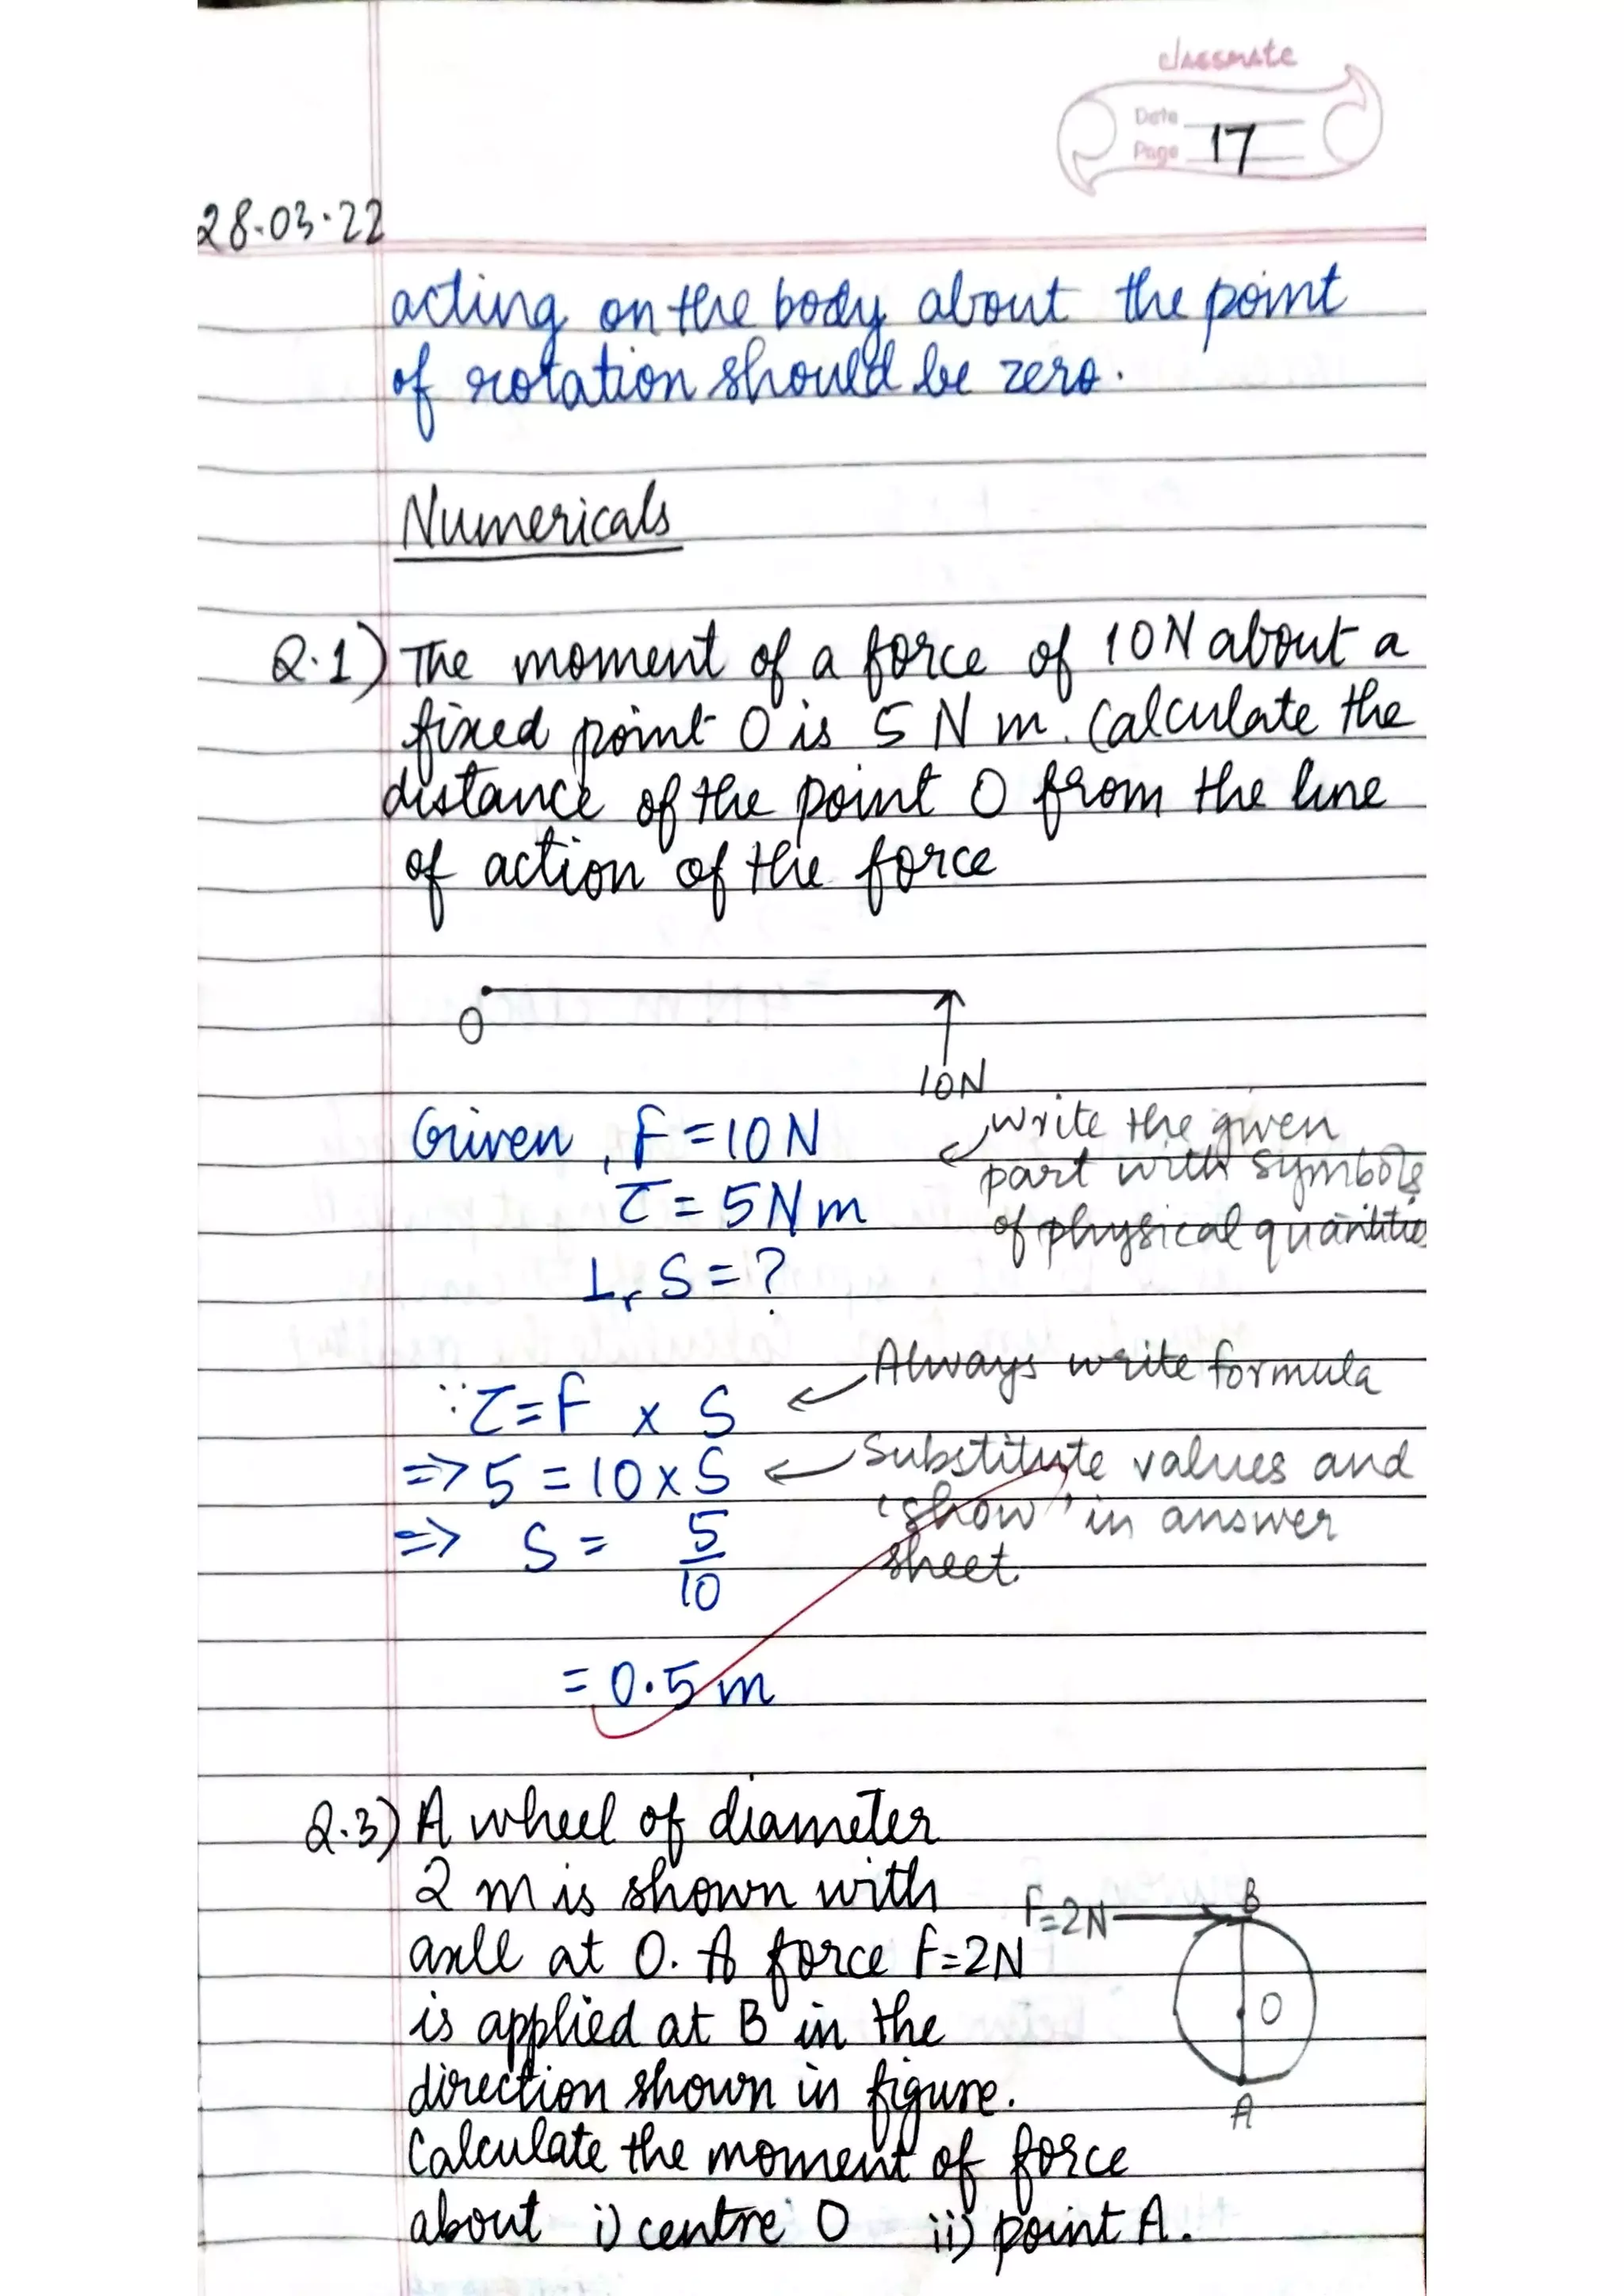 classmate
Date
Page 17
28.03.22
acting on the body about the point
of rotation should be zero.
Numericals
Q.1) The moment of a force of 10N about a
fixed point O is 5 N m. Calculate the
distance of the point O from the line
of action of the force
O
10N
Given, F = 10 N
write the given
part with symbols
of physical quantities
τ = 5 N m
⊥r S = ?
∵ τ = F × S
Always write formula
=> 5 = 10 × S
Substitute values and
'show' in answer
sheet.
=> S = 5/10
= 0.5 m
Q.3) A wheel of diameter
2 m is shown with
axle at O. A force F=2N
is applied at B in the
direction shown in figure.
Calculate the moment of force
about i) centre O ii) point A.
F=2N
B
O
A